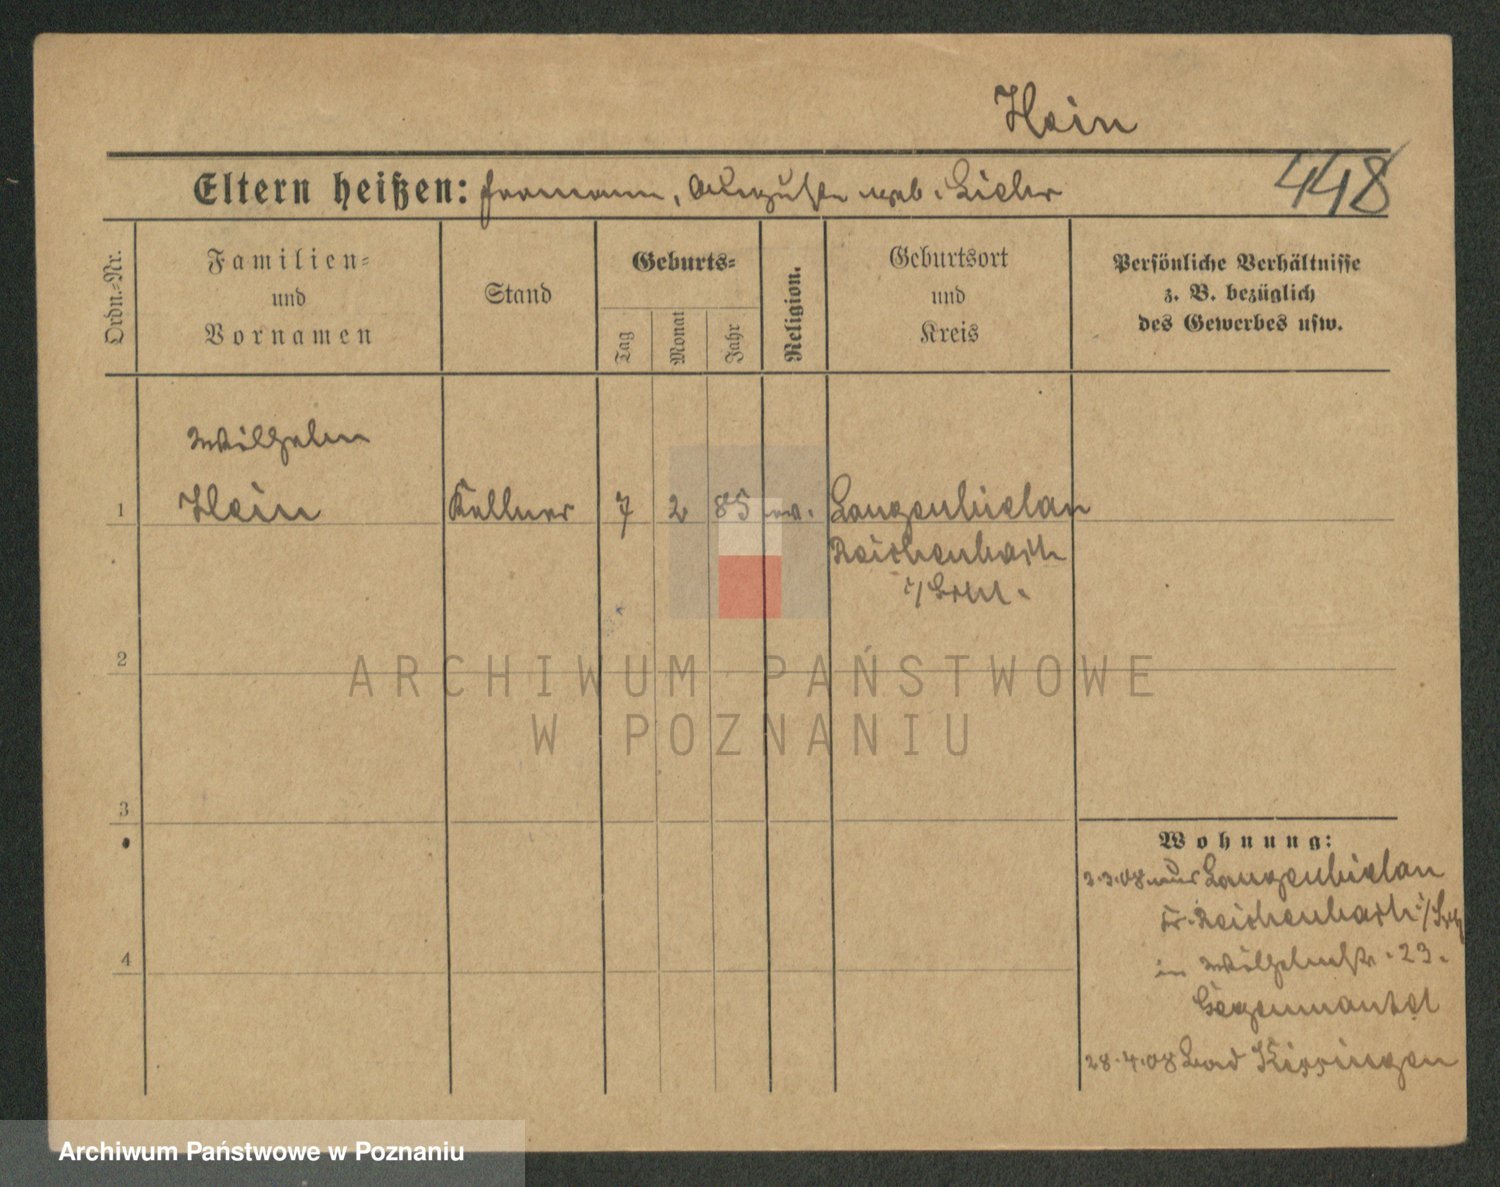 Hein
Eltern heißen: Hermann, Auguste geb.
448
Ordn.-Nr.
Familien-
und
Vornamen
Stand
Geburts-
Tag
Monat
Jahr
Religion.
Geburtsort
und
Kreis
Persönliche Verhältnisse
z. B. bezüglich
des Gewerbes usw.
Wilhelm
1 Hein Kellner 7 2 85 ev. Langenbielau
Reichenbach
i/Schl.
2
ARCHIWUM PAŃSTWOWE
W POZNANIU
3
Wohnung:
3.3.08 Langenbielau
Kr. Reichenbach i/Schl
in Wilhelmstr. 23.
4
28.4.08 Bad Kissingen
Archiwum Państwowe w Poznaniu